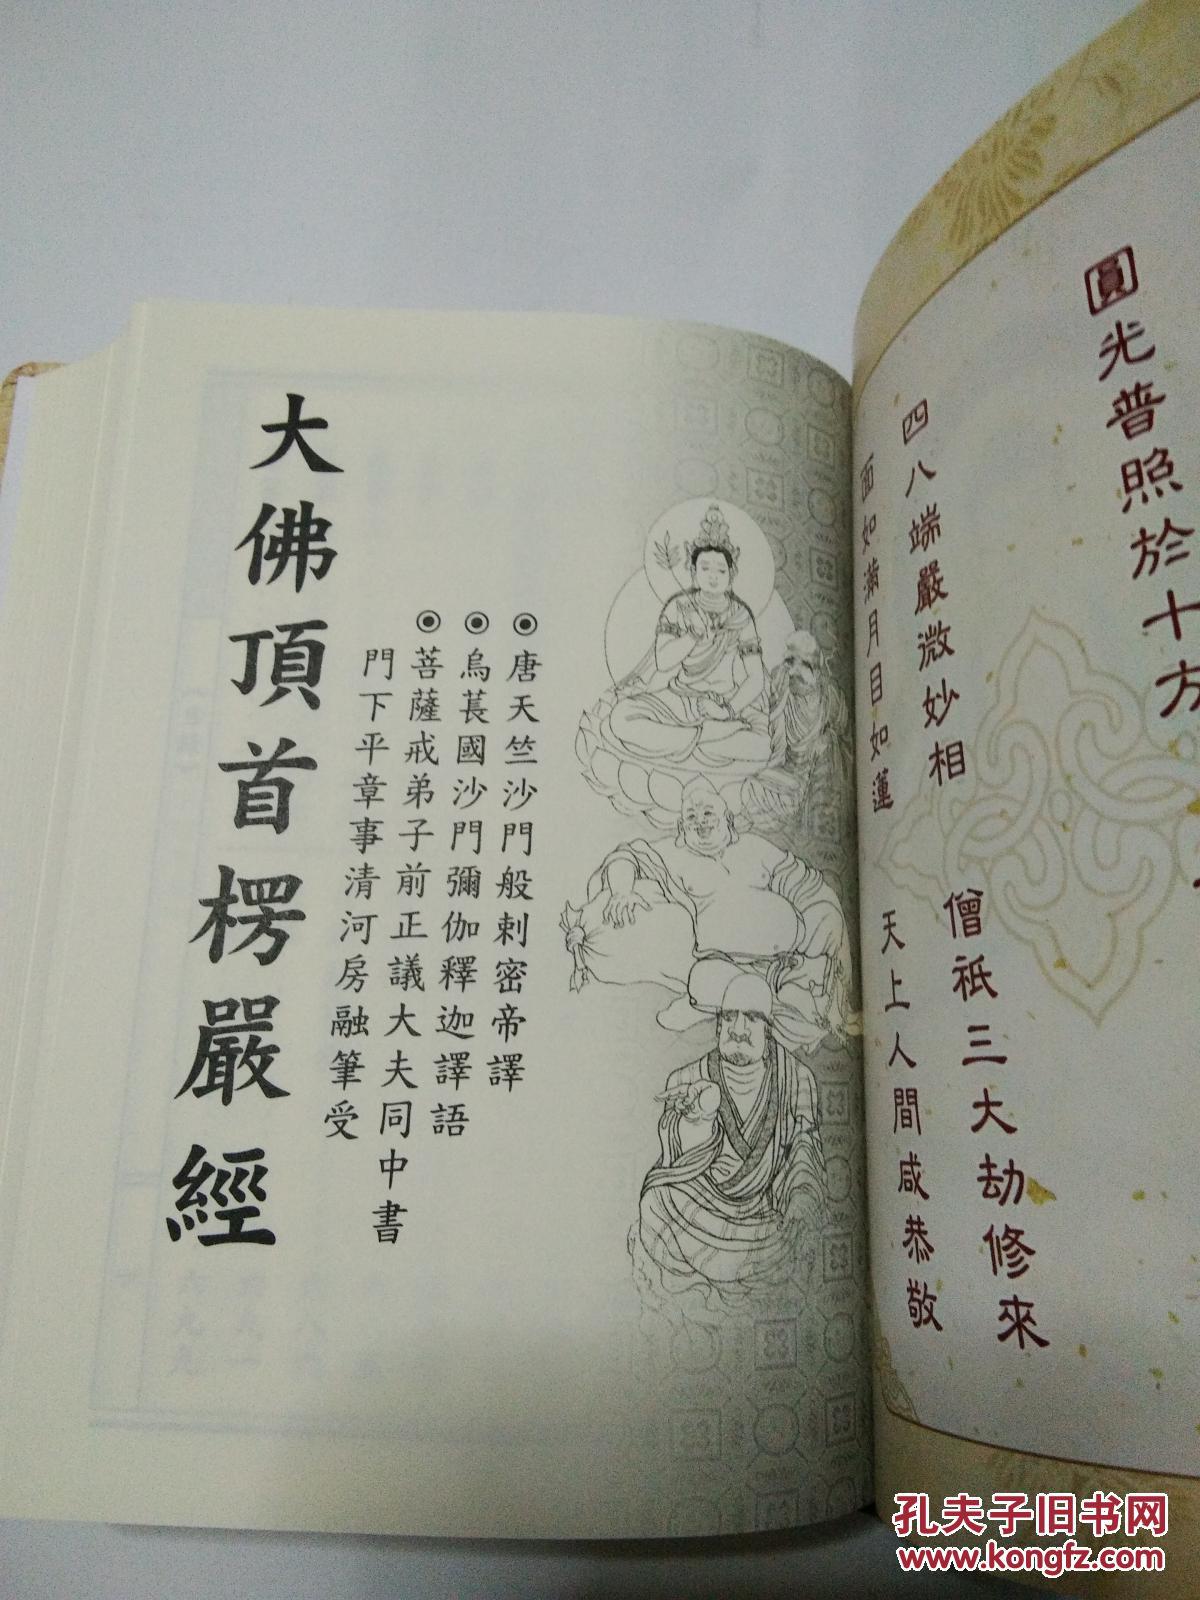 圓光普照於十方
四八端嚴微妙相
僧祇三大劫修來
面如滿月目如蓮
天上人間咸恭敬
唐天竺沙門般剌密帝譯
烏萇國沙門彌伽釋迦譯語
菩薩戒弟子前正議大夫同中書
門下平章事清河房融筆受
大佛頂首楞嚴經
孔夫子旧书网
www.kongfz.com